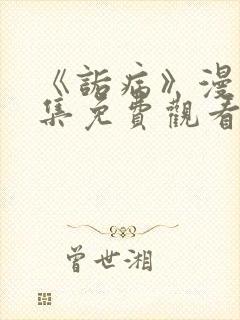 《詬病》漫
集免費觀看
曾世湘